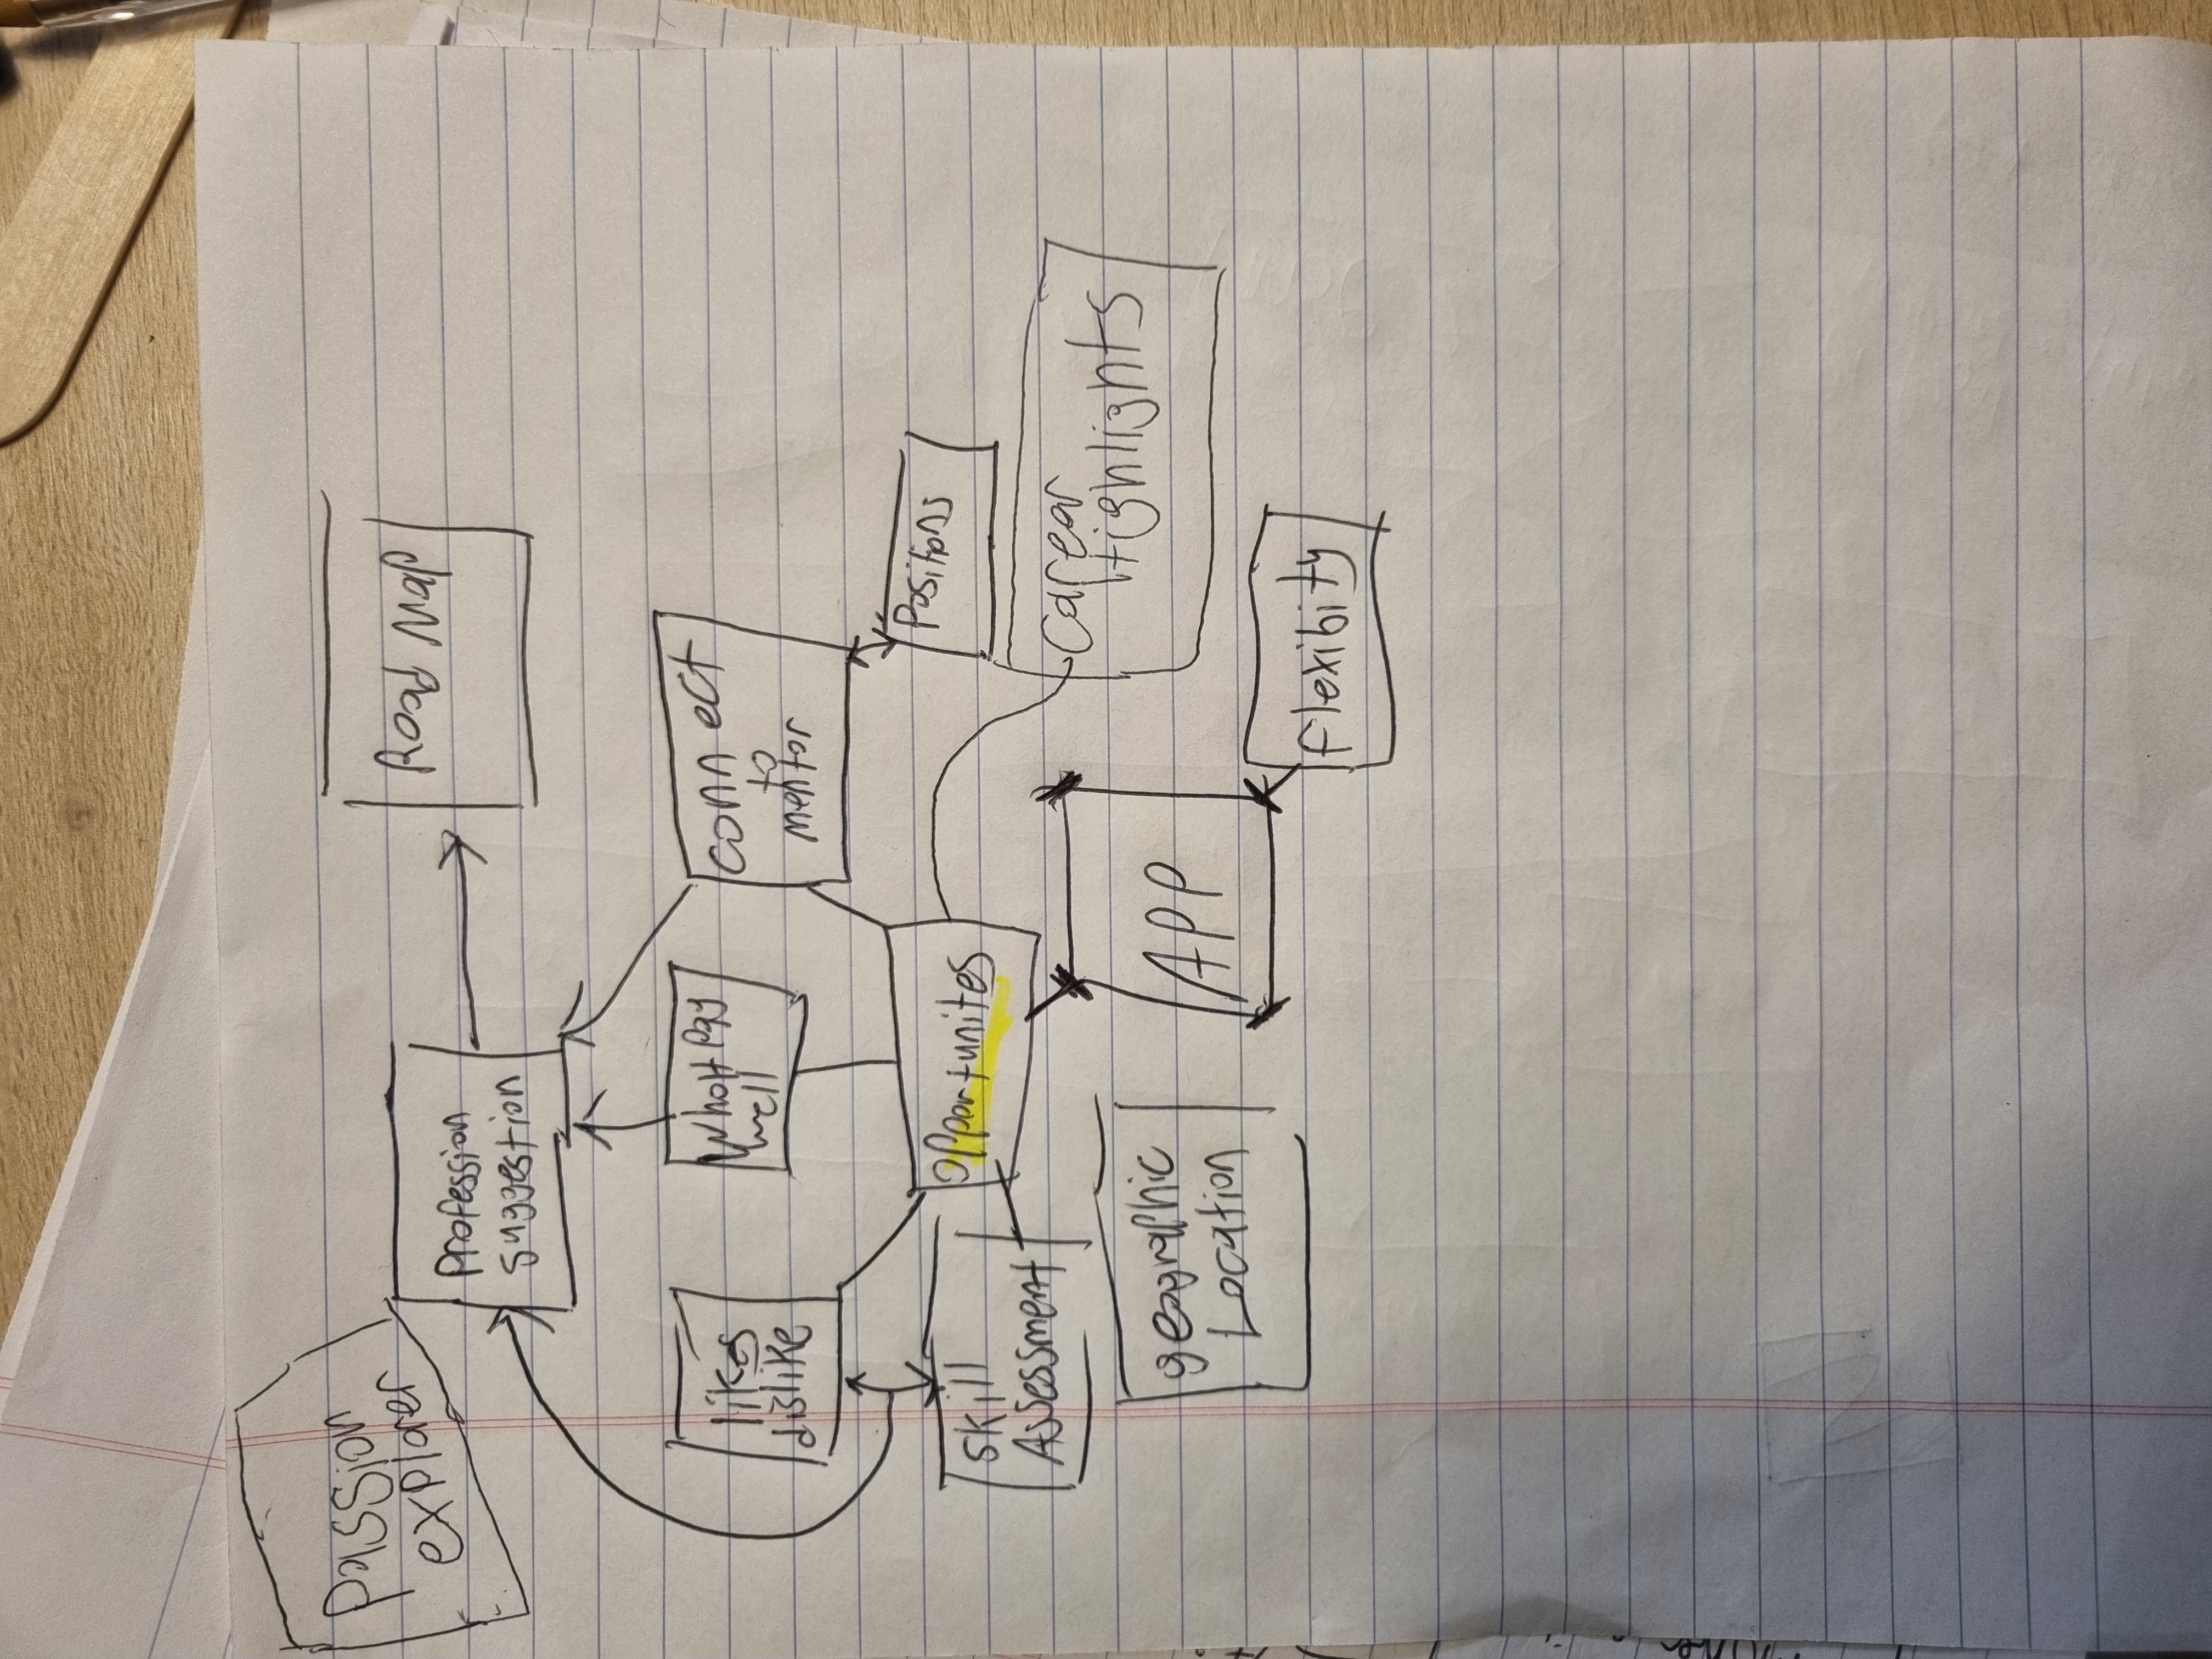 Passion
explorer
Profession
suggestion
Road Map
likes
dislike
Whatt Pay
well
connect
to
mentor
Positions
opportunites
skill
Assessment
Carear
Highlights
geographic
Location
APP
flexibity